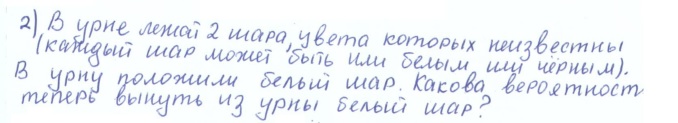 2) В урне лежат 2 шара, цвета которых неизвестны
(каждый шар может быть или белым или чёрным).
В урну положили белый шар. Какова вероятност
теперь вынуть из урны белый шар?